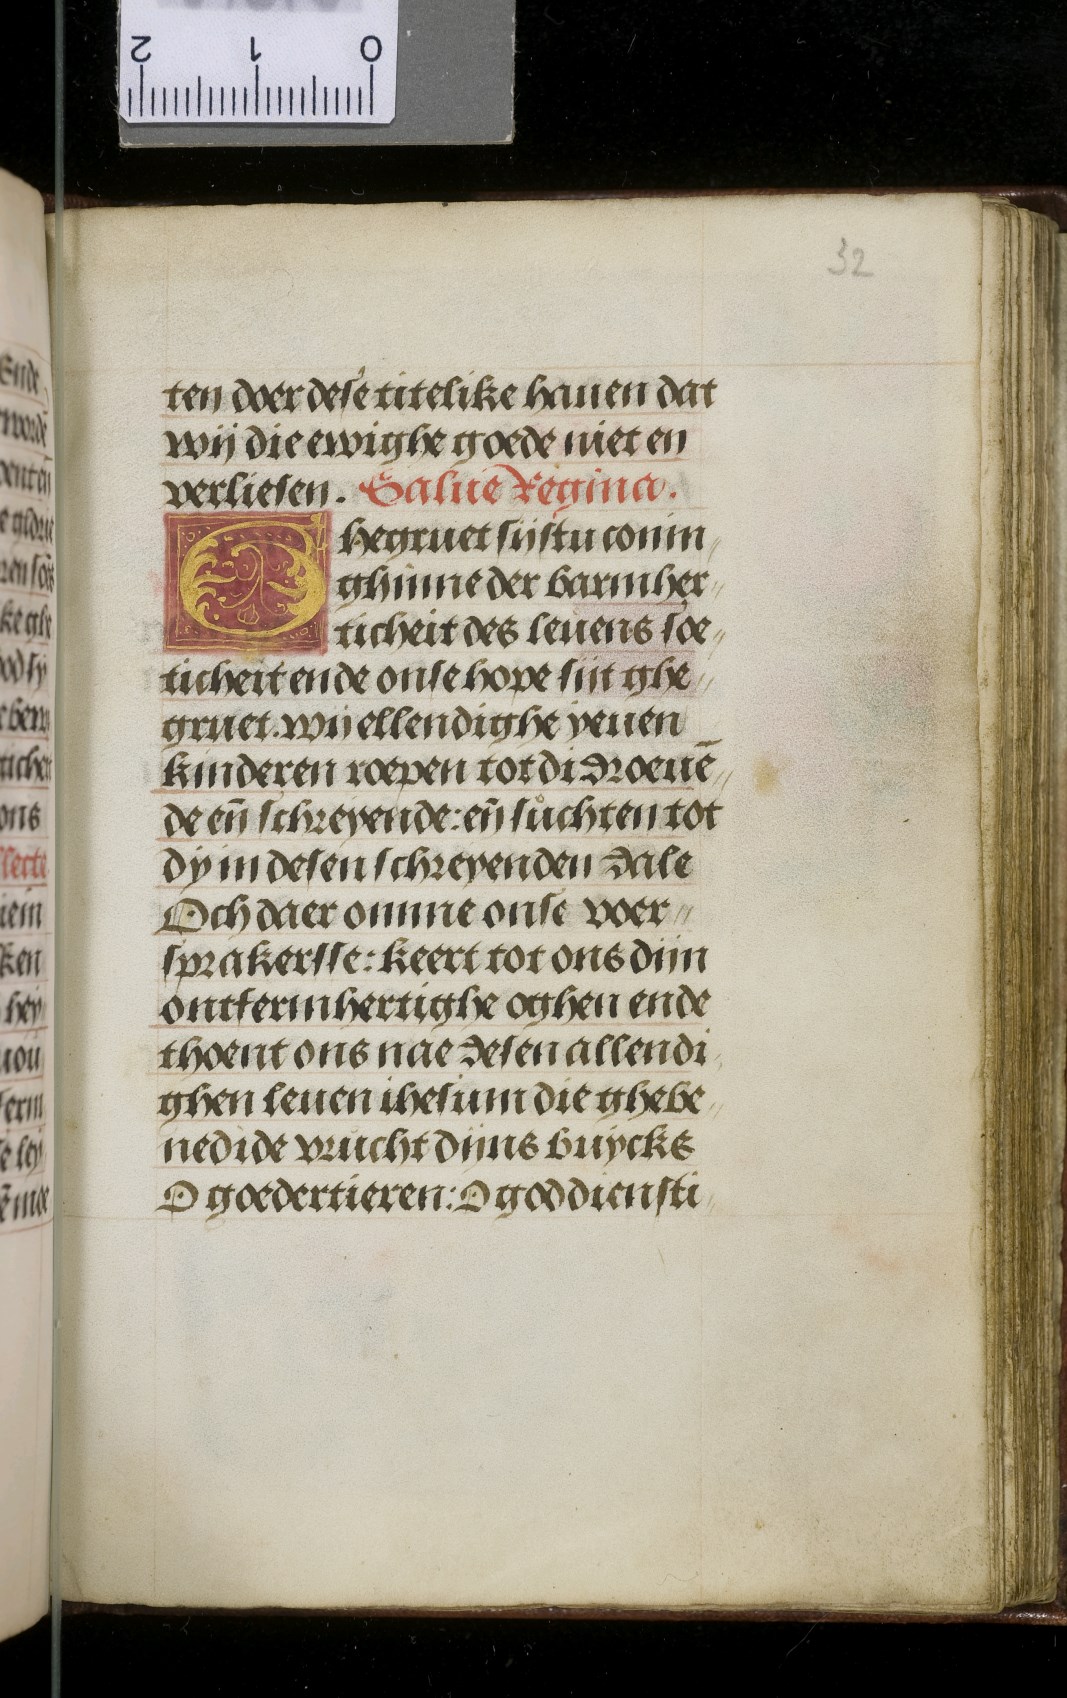 32
ten doer dese titelike hauen dat
wij die ewighe goede niet en
verliesen. Salue Regina.
Ghegruet sijstu conin
ghinne der barmher
ticheit des leuens soe
ticheit ende onse hope sijt ghe
gruet. wij ellendighe yeuen
kinderen roepen tot di Droeuē
de eñ schreyende: eñ suchten tot
dy in desen schreyenden dale
Och daer omme onse voer
sprakersse: keert tot ons dijn
ontfermhertighe oghen ende
thoent ons nae desen allendi
ghen leuen ihesum die ghebe
nedide vrucht dijns buycks
O goedertieren: O goddiensti
2 1 0